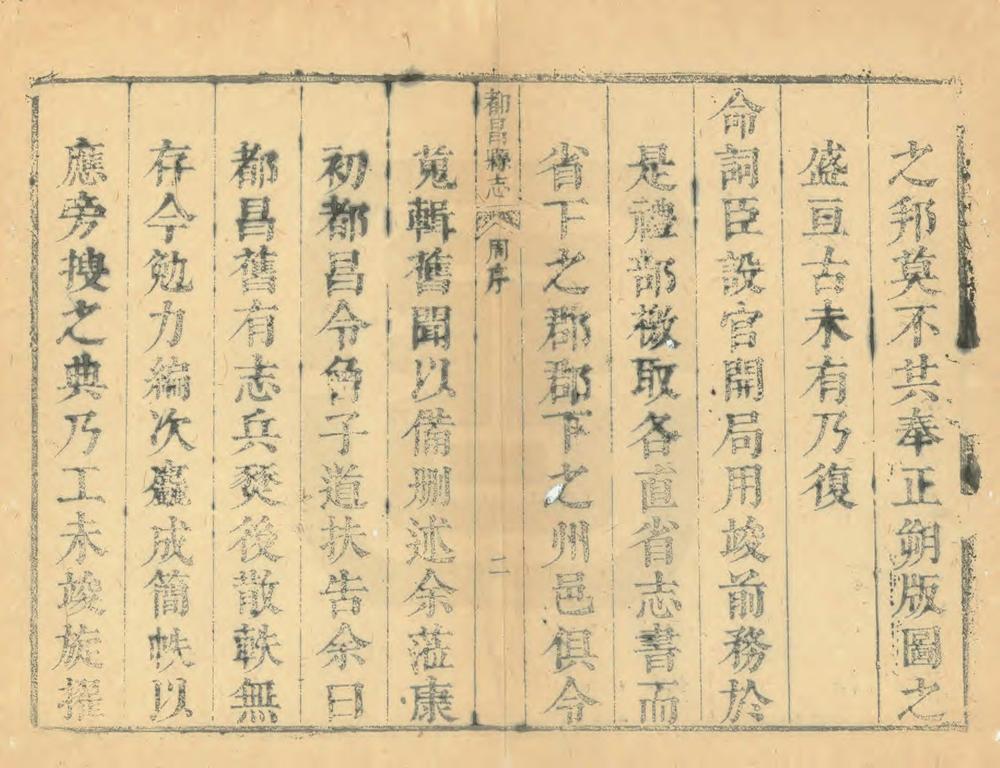 之邦莫不共奉正朔版圖之
盛亘古未有乃復
命詞臣設官開局用竣前務於
是禮部檄取各直省志書而
省下之郡郡下之州邑俱令
都昌縣志 周序 二
蒐輯舊聞以備刪述余蒞康
初都昌令曾子道扶告余曰
都昌舊有志兵燹後散軼無
存今勉力編次麤成簡帙以
應旁搜之典乃工未竣旋擢